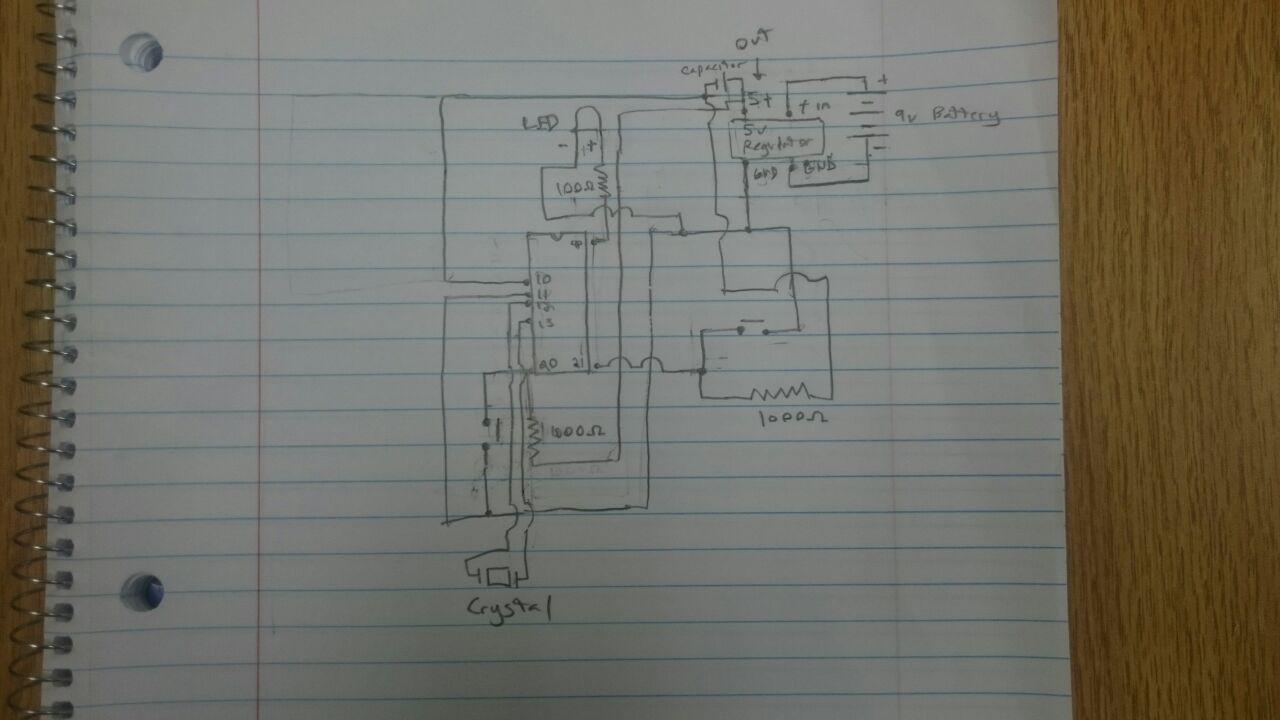 OUT
Capacitor
5+
+ in
+
9v Battery
-
LED
5v
Regulator
GND
GND
- +
100Ω
10
11
13
20 21
1000Ω
1000Ω
Crystal